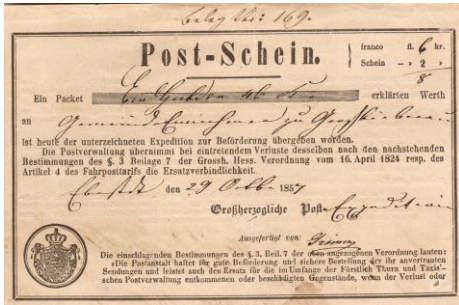 beleg Nr: 169.
Post-Schein.
franco fl. 6 kr.
Schein - „ 2 „
8
Ein Packet Ein Gulden 46 erklärten Werth
an Gemeinde Einnehmer zu
ist heute der unterzeichneten Expedition zur Beförderung übergeben worden.
Die Postverwaltung übernimmt bei eintretendem Verluste desselben nach den nachstehenden
Bestimmungen des §. 3 Beilage 7 der Grossh. Hess. Verordnung vom 16. April 1824 resp. des
Artikel 4 des Fahrposttarifs die Ersatzverbindlichkeit.
den 29 Octbr 1857
Großherzogliche Post-Expedition
Ausgefertigt von:
Die einschlagenden Bestimmungen des §. 3, Beil. 7 der oben angezogenen Verordnung lauten:
„Die Postanstalt haftet für gute Beförderung und sichere Bestellung der ihr anvertrauten
Sendungen und leistet auch den Ersatz für die im Umfange der Fürstlich Thurn und Taxis'-
schen Postverwaltung entkommenen oder beschädigten Gegenstände, wenn der Verlust oder